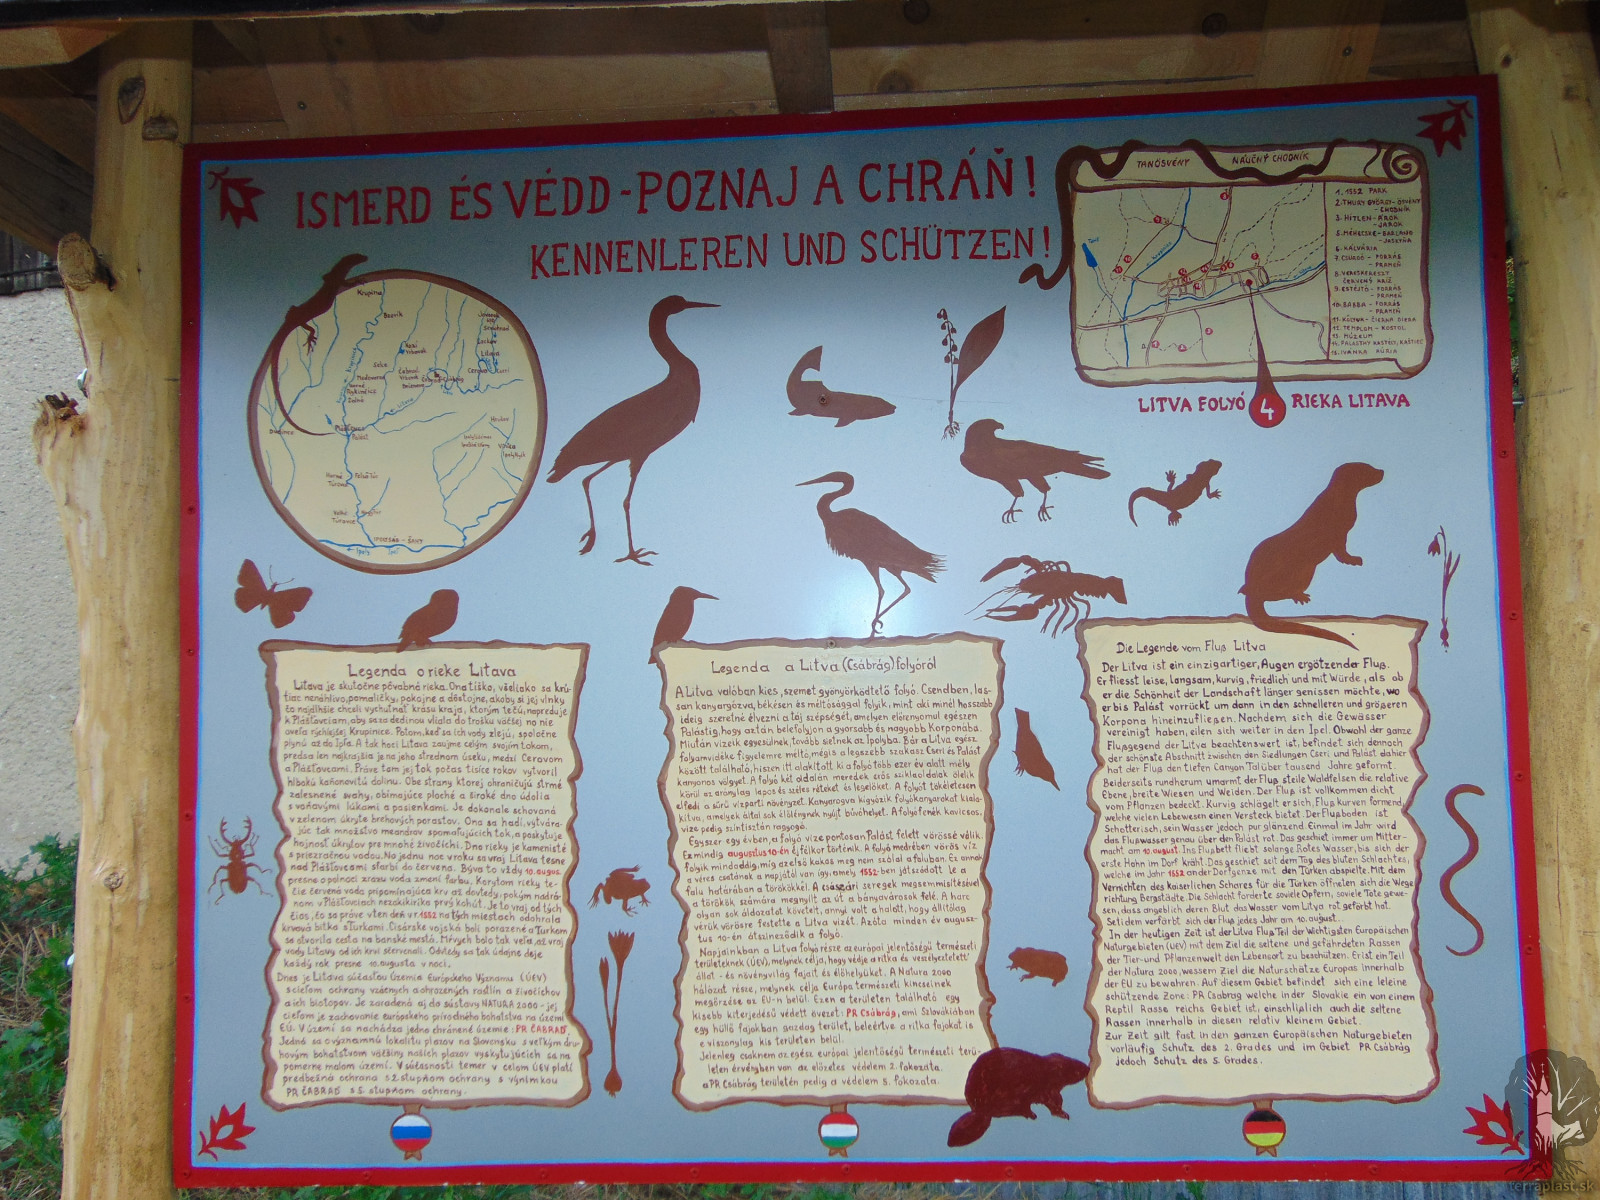 ISMERD ÉS VÉDD - POZNAJ A CHRÁŇ!
KENNENLEREN UND SCHÜTZEN!
TANÖSVÉNY NÁUČNÝ CHODNÍK
1. 1552 PARK
2. THURY GYÖRGY - ÖSVÉNY
- CHODNÍK
3. HITLEN - ÁROK
- JAROK
5. MÉHECSKE - BARLANG
- JASKYŇA
6. KÁLVÁRIA
7. CSURGÓ - FORRÁS
- PRAMEŇ
8. VERESKERESZT
ČERVENÝ KRÍŽ
- FORRÁS
- PRAMEŇ
10. BABBA - FORRÁS
- PRAMEŇ
12. TEMPLOM - KOSTOL
13. MÚZEUM
14. PALÁSTHY KASTÉLY, KAŠTIEĽ
15. IVÁNKA KÚRIA
LITVA FOLYÓ 4 RIEKA LITAVA
Krupina
Bzovík
Čabraď - Csábrág
Litava
Cerovo
Plášťovce
Palást
Ipoly
Legenda o rieke Litava
Litava je skutočne pôvabná rieka. Ona ticho, všelijako sa krú-
tiac nenáhlivo, pomaličky, pokojne a dôstojne, akoby si jej vlnky
čo najdlhšie chceli vychutnať krásu kraja, ktorým tečú, napreduje
k Plášťovciam, aby sa za dedinou vliala do trošku väčšej no nie
oveľa rýchlejšej Krupinice. Potom, keď sa ich vody zlejú, spoločne
plynú až do Ipľa. A tak hoci Litava zaujme celým svojím tokom,
predsa len najkrajšia je na jeho strednom úseku, medzi Cerovom
a Plášťovcami. Práve tam jej tok počas tisíce rokov vytvoril
hlbokú kaňonovitú dolinu. Obe strany ktorej ohraničujú strmé
zalesnené svahy, obímajúce ploché a široké dno údolia
s voňavými lúkami a pasienkami. Je dokonale schovaná
v zelenom úkryte brehových porastov. Ona sa hadí, vytvára-
júc tak množstvo meandrov spomaľujúcich tok, a poskytuje
hojnosť úkrytov pre mnohé živočíchi. Dno rieky je kamenisté
s priezračnou vodou. Na jednu noc v roku sa vraj Litava tesne
nad Plášťovcami sfarbí do červena. Býva to vždy 10. augus.
presne o polnoci zrazu voda zmení farbu. Korytom rieky te-
čie červená voda pripomínajúca krv až dovtedy, pokým nadrá-
nom v Plášťovciach nezakikiríka prvý kohút. Je to vraj od tých
čios, čo sa práve v ten deň v r. 1552 na tých miestach odohrala
krvavá bitka s Turkami. Cisárske vojská boli porazené a Turkom
sa otvorila cesta na banské mestá. Mŕtvych bolo tak veľa, až vraj
vody Litavy od ich krvi sčervenali. Odvtedy sa tak údajne deje
každý rok presne 10. augusta v noci.
Dnes je Litava súčasťou Územia Európskeho Významu (ÚEV)
s cieľom ochrany vzácnych a ohrozených rastlín a živočíchov
a ich biotopov. Je zaradená aj do sústavy NATURA 2000 - jej
cieľom je zachovanie európskeho prírodného bohatstva na území
EÚ. V území sa nachádza jedno chránené územie: PR ČABRAĎ.
Jedná sa o významnú lokalitu plazov na Slovensku s veľkým dru-
hovým bohatstvom väčšiny našich plazov vyskytujúcich sa na
pomerne malom území. V súčasnosti temer v celom ÚEV platí
predbežná ochrana s 2. stupňom ochrany s výnimkou
PR ČABRAĎ s 5. stupňom ochrany.
Legenda a Litva (Csábrág) folyóról
A Litva valóban kies, szemet gyönyörködtető folyó. Csendben, las-
san kanyargózva, békésen és méltósággal folyik, mint aki minél hosszabb
ideig szeretné élvezni a táj szépségét, amelyen előrenyomul egészen
Palástig, hogy aztán belefolyjon a gyorsabb és nagyobb Korponába.
Miután vizeik egyesülnek, tovább sietnek az Ipolyba. Bár a Litva egész
folyamvidéke figyelemre méltó, mégis a legszebb szakasz Cseri és Palást
között található, hiszen itt alakított ki a folyó több ezer év alatt mély
kanyonos völgyet. A folyó két oldalán meredek erős sziklaoldalak ölelik
körül az aránylag lapos és széles réteket és legelőket. A folyót tökéletesen
elfedi a sűrű vízparti növényzet. Kanyarogva kígyózik folyókanyarokat kiala-
kítva, amelyek által sok élőlénynek nyújt búvóhelyet. A folyófenék kavicsos,
vize pedig színtisztán ragyogó.
Egyszer egy évben, a folyó vize pontosan Palást felett vörössé válik.
Ez mindig augusztus 10-én éjfélkor történik. A folyó medrében vörös víz
folyik mindaddig, míg az első kakas meg nem szólal a faluban. Ez annak
a véres csatának a napjától van így, amely 1552-ben játszódott le a
falu határában a törökökkel. A császári seregek megsemmisítésével
a törökök számára megnyílt az út a bányavárosok felé. A harc
olyan sok áldozatot követelt, annyi volt a halott, hogy állítólag
vérük vörösre festette a Litva vizét. Azóta minden év augusz-
tus 10-én átszíneződik a folyó.
Napjainkban a Litva folyó része az európai jelentőségű természeti
területeknek (ÚEV), melynek célja, hogy védje a ritka és veszélyeztetett
állat - és növényvilág fajait és élőhelyüket. A Natura 2000
hálózat része, melynek célja Európa természeti kincseinek
megőrzése az EU-n belül. Ezen a területen található egy
kisebb kiterjedésű védett övezet: PR Csábrág, ami Szlovákiában
egy hüllő fajokban gazdag terület, beleértve a ritka fajokat is
e viszonylag kis területen belül.
Jelenleg csaknem az egész európai jelentőségű természeti terü-
leten érvényben van az előzetes védelem 2. fokozata.
a PR Csábrág területén pedig a védelem 5. fokozata.
Die Legende vom Fluß Litva
Der Litva ist ein einzigartiger, Augen ergötzender Fluß.
Er fliesst leise, langsam, kurvig, friedlich und mit Würde, als ob
er die Schönheit der Landschaft länger genissen möchte, wo
er bis Palást vorrückt um dann in den schnelleren und größeren
Korpona hineinzufließen. Nachdem sich die Gewässer
vereinigt haben, eilen sich weiter in den Ipel. Obwohl der ganze
Flußgegend der Litva beachtenswert ist, befindet sich dennoch
der schönste Abschnitt zwischen den Siedlungen Cseri und Palást dahier
hat der Fluß den tiefen Canyon Tal über tausend Jahre geformt.
Beiderseits rundherum umarmt der Fluß steile Waldfelsen die relative
Ebene, breite Wiesen und Weiden. Der Fluß ist vollkommen dicht
vom Pflanzen bedeckt. Kurvig schlägelt er sich, Fluß kurven formend,
welche vielen Lebewesen einen Versteck bietet. Der Flußboden ist
Schotterisch, sein Wasser jedoch pur glänzend. Einmal im Jahr wird
das Flußwasser genau über den Palást rot. Das geschiet immer um Mitter-
macht am 10. august. Ins Flußbett fließt solange Rotes Wasser, bis sich der
erste Hahn im Dorf kräht. Das geschiet seit dem Tag des bluten Schlachtes,
welche im Jahr 1552 an der Dorfgenze mit den Türken abspielte. Mit dem
Vernichten des Kaiserlichen Schares für die Türken öffneten sich die Wege
richtung Bergstädte. Die Schlacht forderte soviele Opfern, soviele Tote gewe-
sen, dass angeblich deren Blut das Wasser vom Litva rot gefärbt hat.
Seitdem verfärbt sich der Fluß jedes Jahr am 10. august.
In der heutigen Zeit ist der Litva Fluß Teil der Wichtigsten Europäischen
Naturgebieten (ÚEV) mit dem Ziel die seltene und gefährdeten Rassen
der Tier- und Pflanzenwelt den Lebensart zu beschützen. Er ist ein Teil
der Natura 2000, wessem Ziel die Naturschätze Europas innerhalb
der EU zu bewahren. Auf diesem Gebiet befindet sich eine leleine
schützende Zone: PR Csabrag welche in der Slovakie ein von einem
Reptil Rasse reichs Gebiet ist, einschlißlich auch die seltene
Rassen innerhalb in diesen relativ kleinem Gebiet.
Zur Zeit gilt fast in den ganzen Europäischen Naturgebieten
vorläufig Schutz des 2. Grades und im Gebiet PR Csábrág
jedoch Schutz des 5. Grades.
terraplast.sk